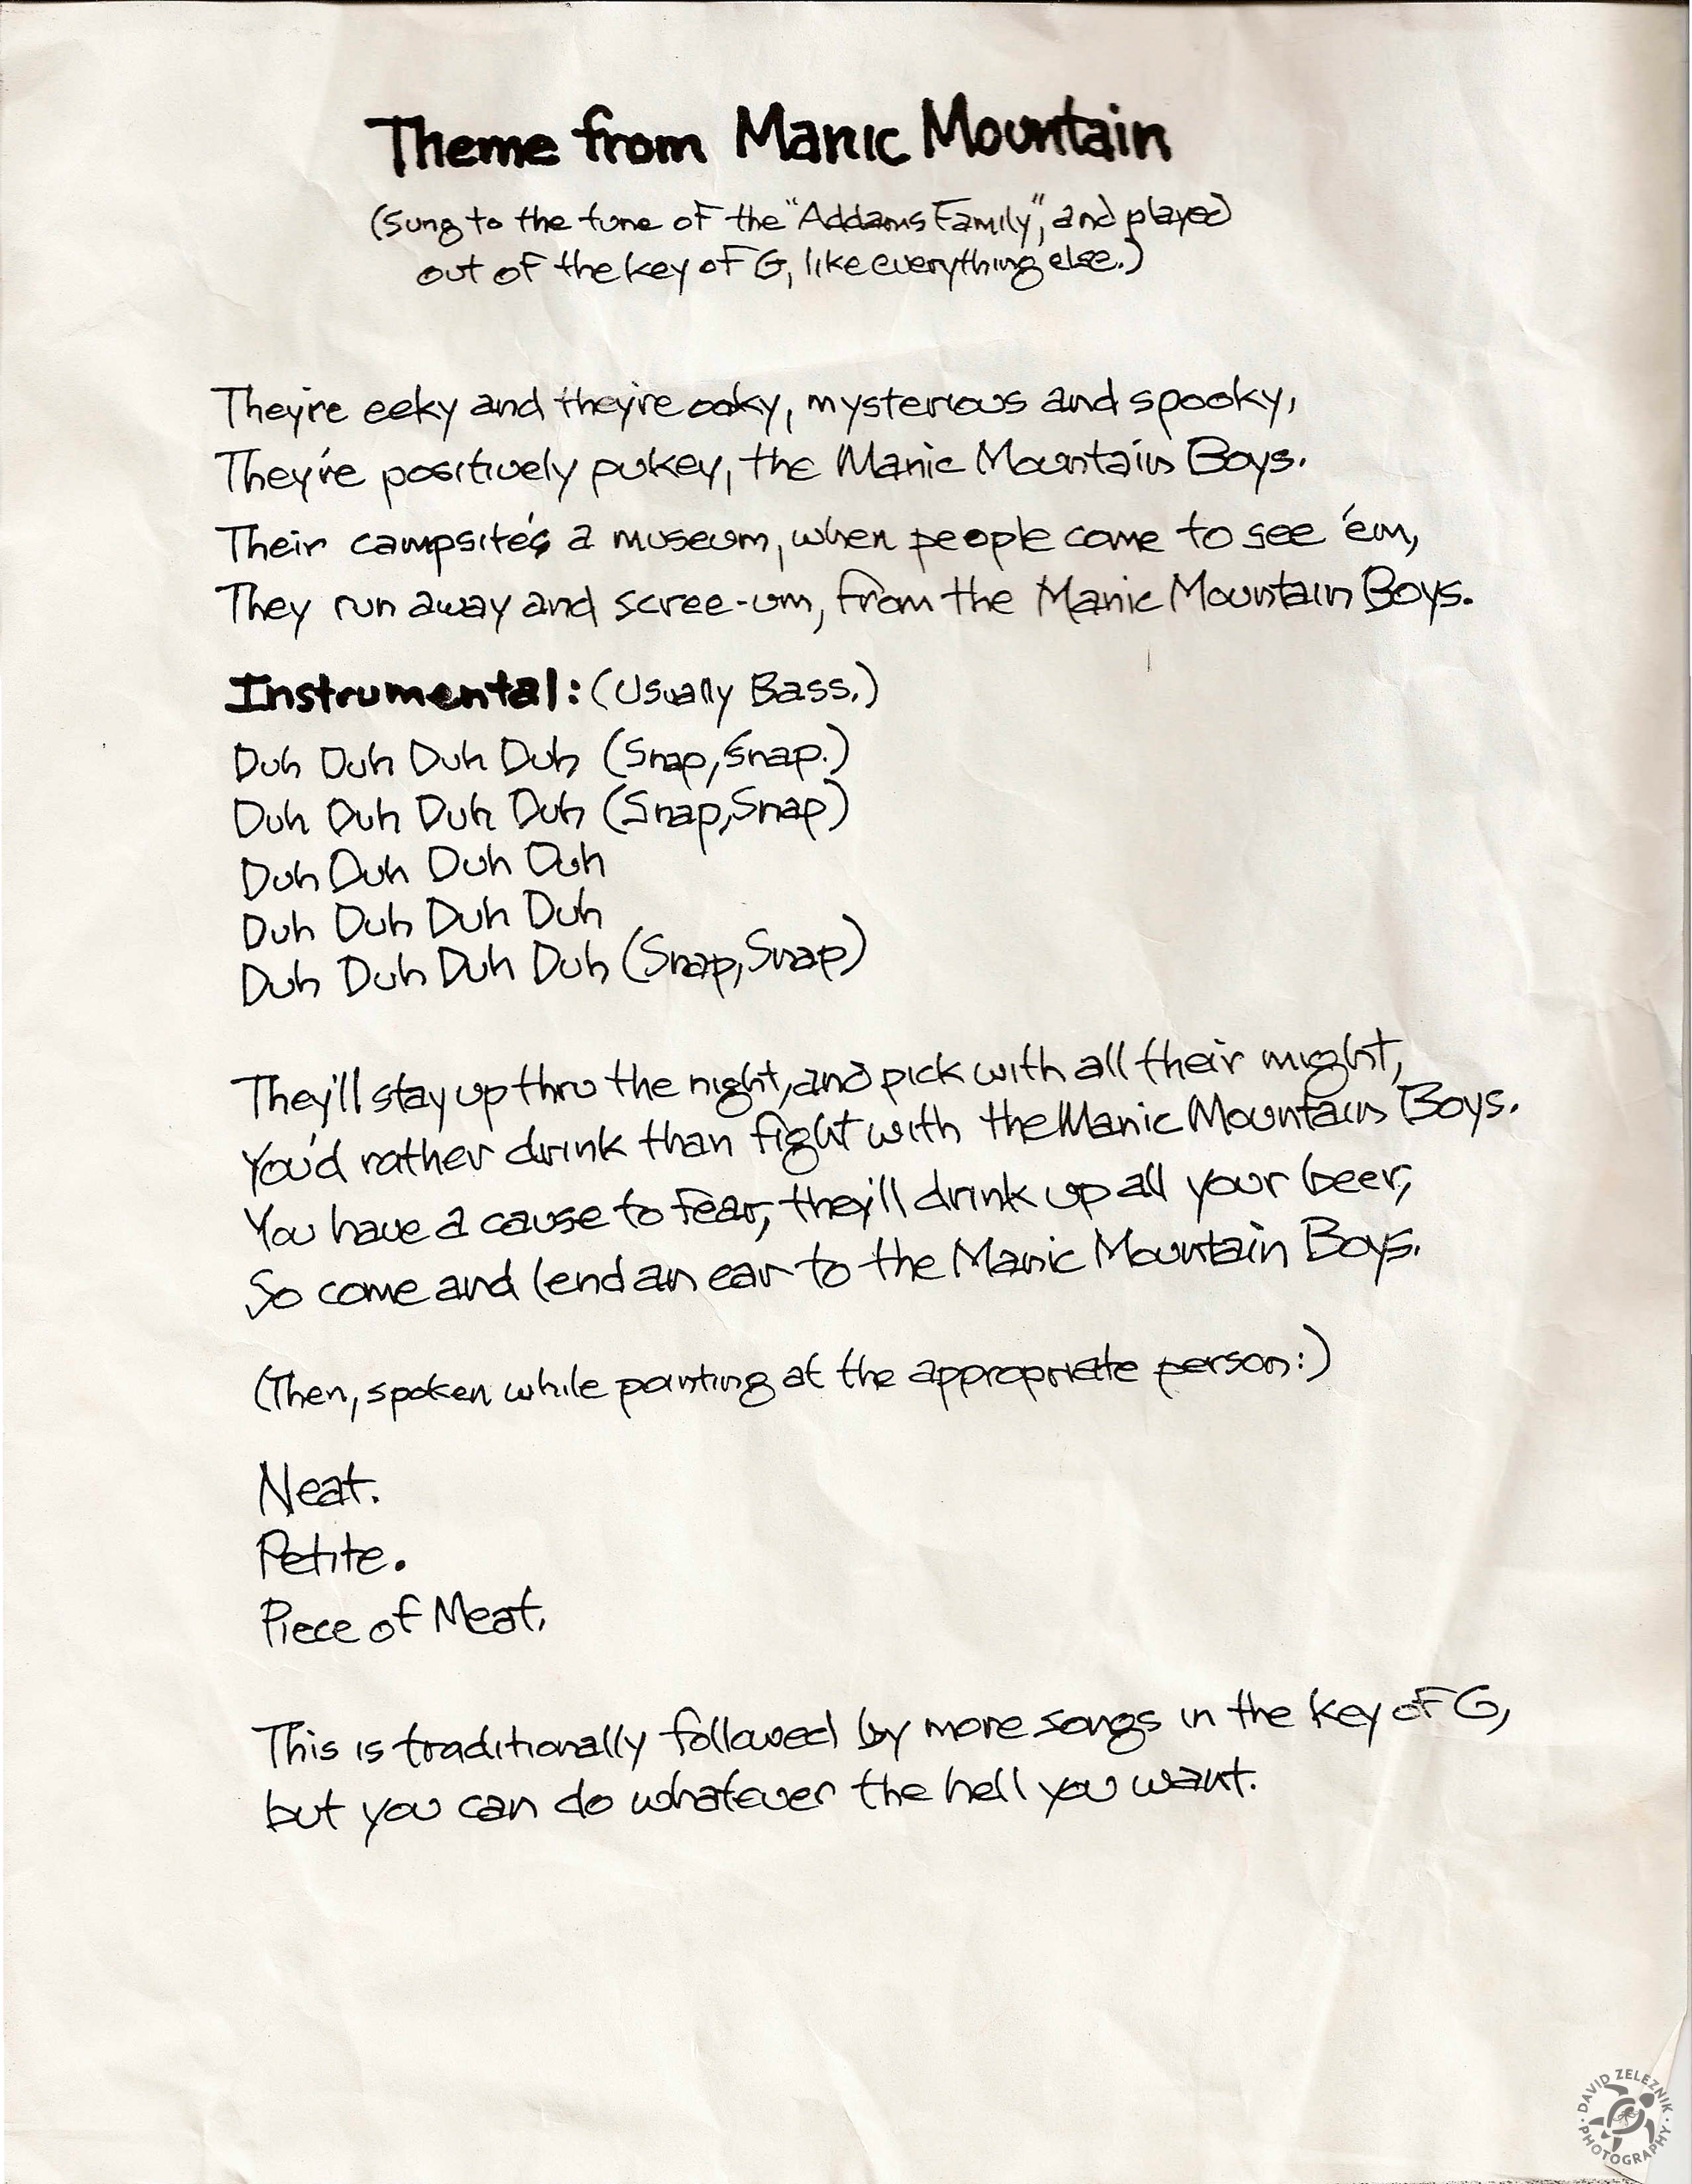 Theme from Manic Mountain
(Sung to the tune of the "Addams Family", and played
out of the key of G, like everything else.)
They're eeky and they're ooky, mysterious and spooky,
They're positively pukey, the Manic Mountain Boys.
Their campsite's a museum, when people come to see 'em,
They run away and scree-um, from the Manic Mountain Boys.
Instrumental: (Usually Bass.)
Duh Duh Duh Duh (Snap, Snap.)
Duh Duh Duh Duh (Snap, Snap)
Duh Duh Duh Duh
Duh Duh Duh Duh
Duh Duh Duh Duh (Snap, Snap)
They'll stay up thru the night, and pick with all their might,
You'd rather drink than fight with the Manic Mountain Boys.
You have a cause to fear, they'll drink up all your beer,
So come and lend an ear to the Manic Mountain Boys.
(Then, spoken while pointing at the appropriate person:)
Neat.
Petite.
Piece of Meat.
This is traditionally followed by more songs in the key of G,
but you can do whatever the hell you want.
DAVID ZELEZNIK
PHOTOGRAPHY